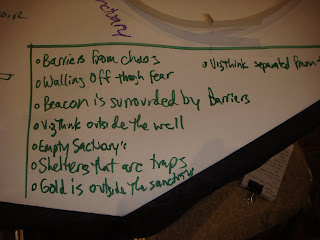 • Barriers from chaos
• VizThink separated from
• Walling Off though fear
• Beacon is surrouded by Barriers
• VizThink outside the well
• Empty Sactuary's
• Shelters that are traps
• Gold is outside the sanctury